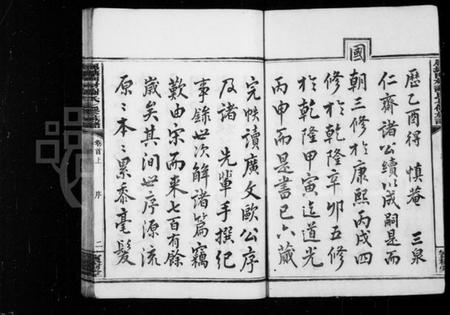 歷乙酉得 慎菴 三泉
仁齋諸公續以成嗣是而
國
朝三修於康熙丙戌四
修於乾隆辛卯五修
於乾隆甲寅迄道光
丙申而是書已六葳
完帙讀廣文歐公序
及諸 先輩手撰紀
事錄世次解諸篇竊
歎由宋而來七百有餘
歲矣其間世序源流
原原本本累黍毫髮
卷首上 序 二